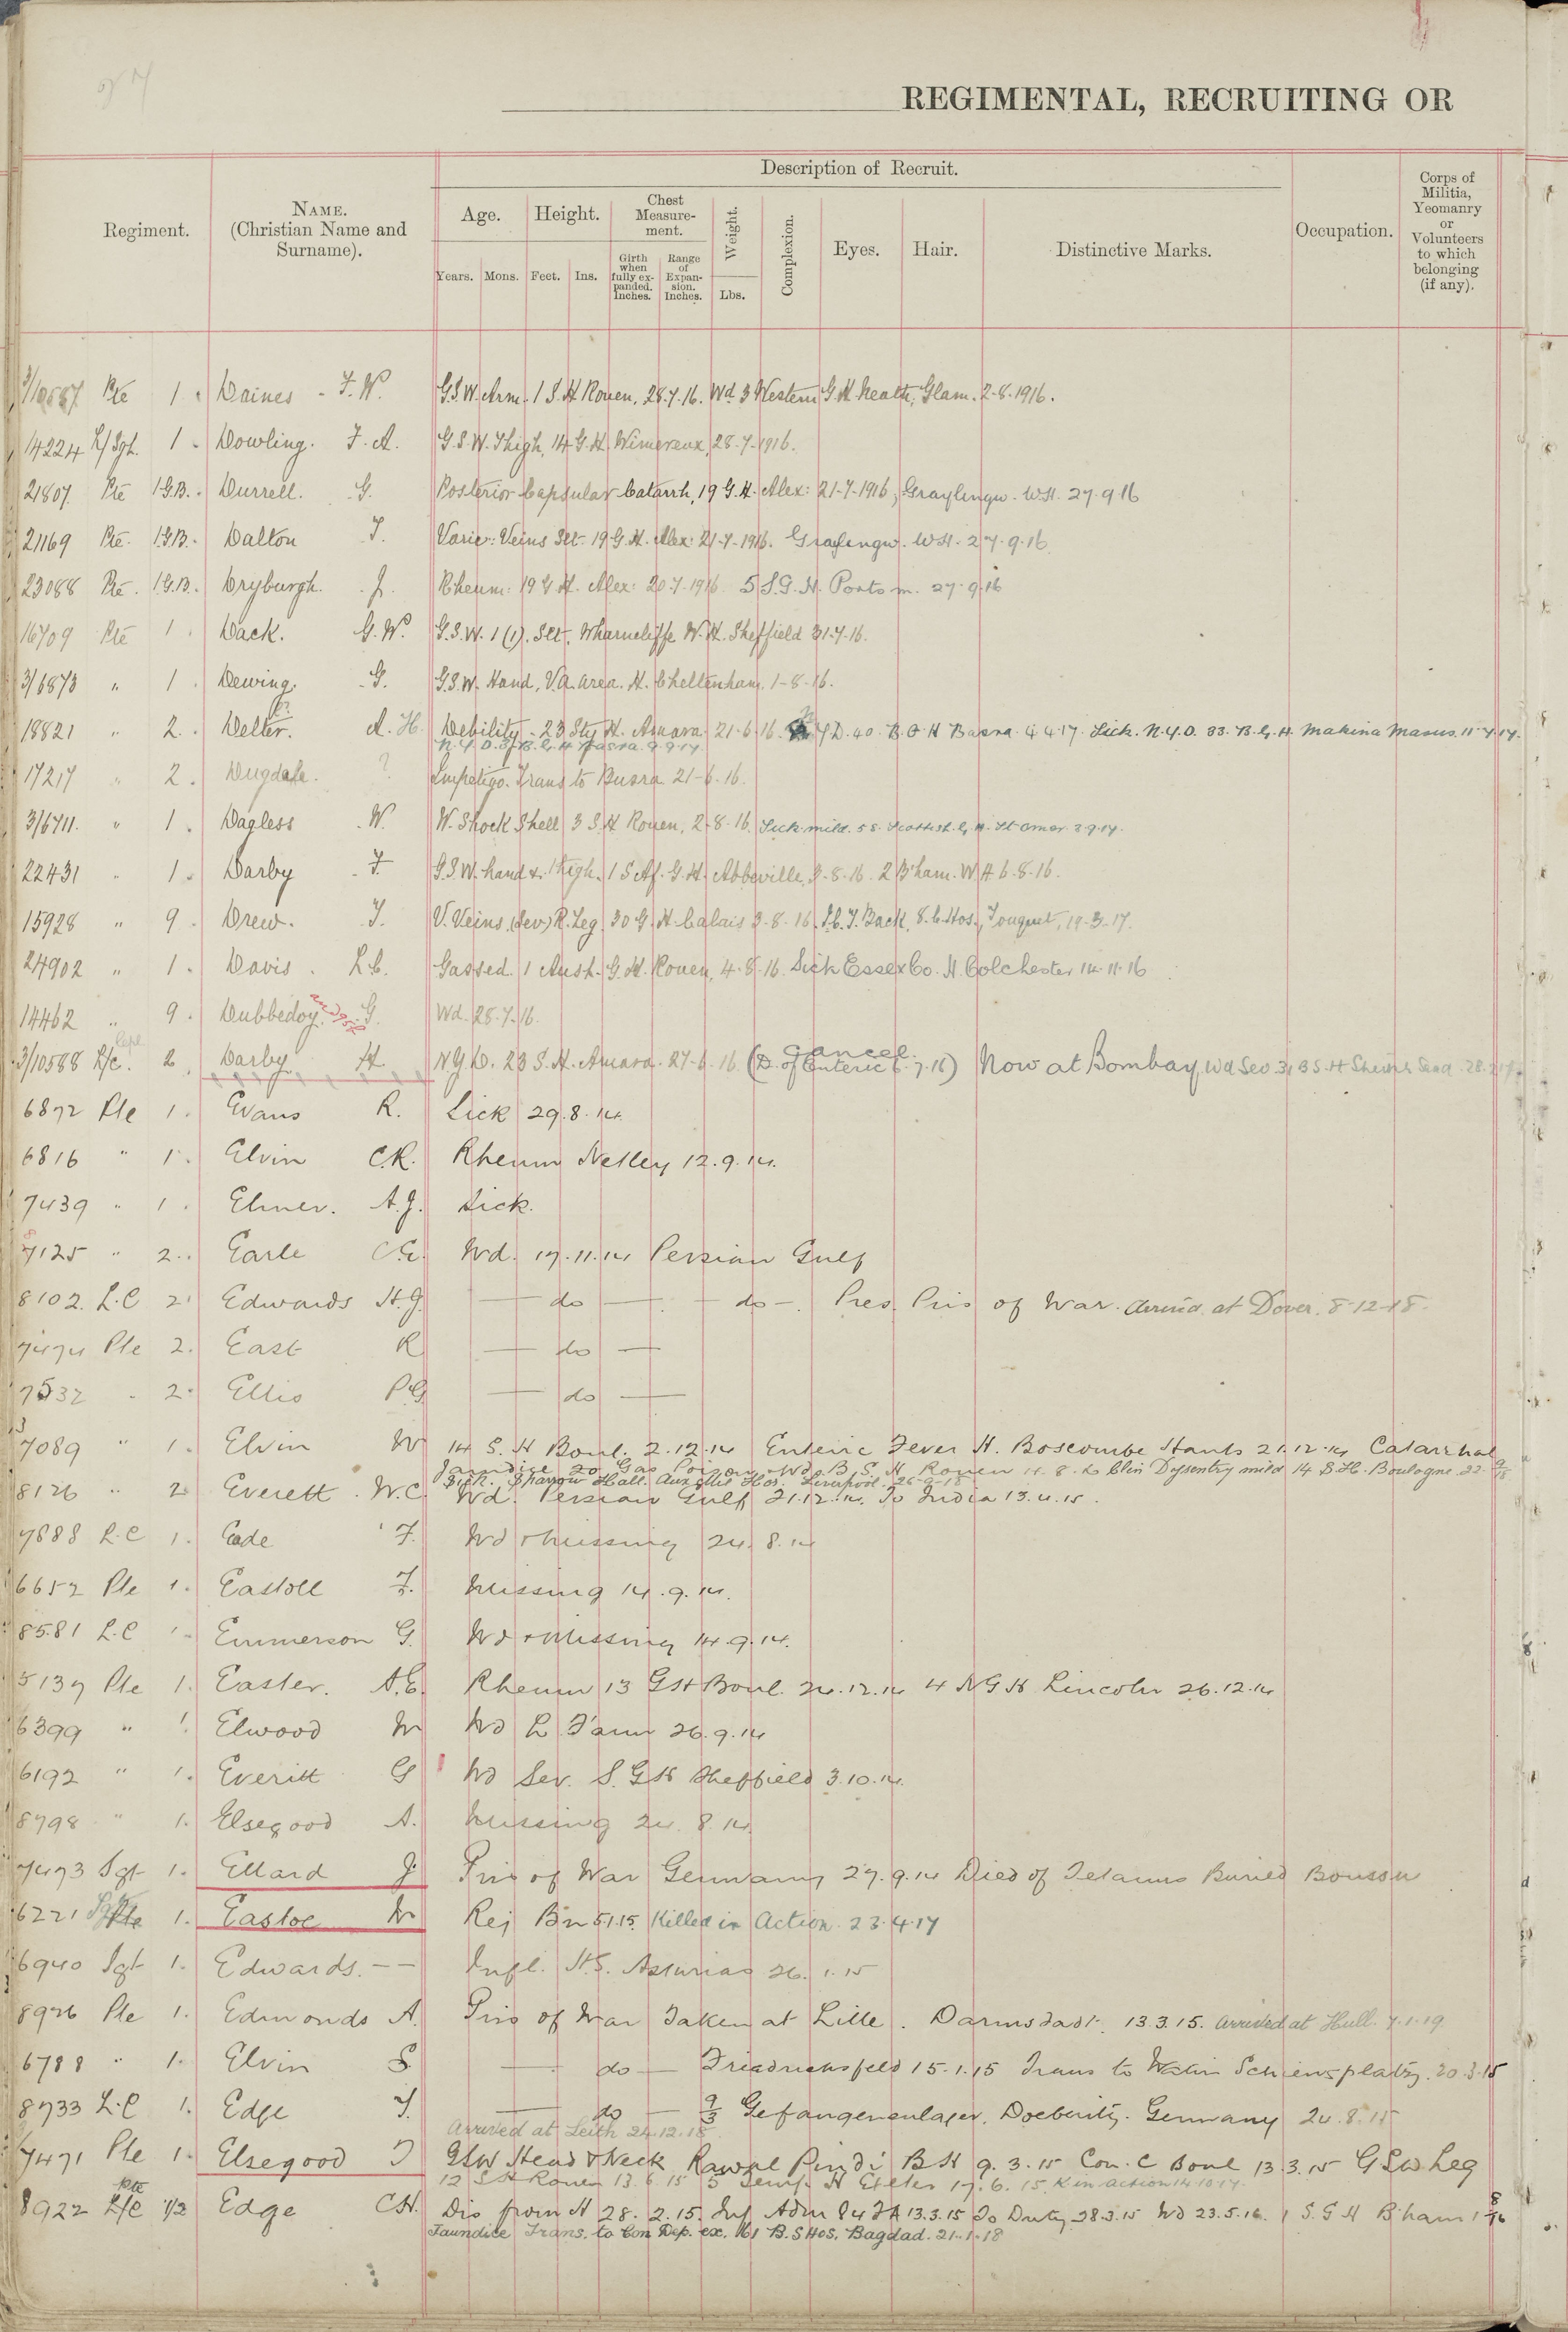 REGIMENTAL, RECRUITING OR
Regiment.
NAME.
(Christian Name and
Surname).
Description of Recruit.
Age.
Years. Mons.
Height.
Feet. Ins.
Chest
Measure-
ment.
Girth
when
fully ex-
panded.
Inches.
Range
of
Expan-
sion.
Inches.
Weight.
Lbs.
Complexion.
Eyes.
Hair.
Distinctive Marks.
Occupation.
Corps of
Militia,
Yeomanry
or
Volunteers
to which
belonging
(if any).
3/10587 Pte 1. Daines - F.W. G.S.W. Arm. 1 S.H Rouen, 28.7.16. Wd 3 Western G.H. Neath, Glam. 2-8-1916.
14224 L/Sgt. 1. Dowling. F.A. G.S.W. Thigh, 14 G.H. Wimereux, 28-7-1916.
21807 Pte 1.G.B. Durrell. G. Posterior Capsular Catarrh, 19 G.H. Alex: 21-7-1916, Graylingw. W.H. 27.9.16
21169 Pte. 1.G.B. Dalton T. Varic: Veins Slt. 19 G.H. Alex: 21-7-1916. Graylingw. W.H. 27.9.16
23088 Pte. 1.G.B. Dryburgh. J. Rheum: 19 G.H. Alex: 20.7.1916 5 S.G.H. Portsm. 27.9.16
16709 Pte 1. Dack. G.W. G.S.W. 1 (1). Slt, Wharncliffe W.H. Sheffield 31.7.16.
3/6873 " 1. Dewing. G. G.S.W. Hand, V.A. area. H. Cheltenham. 1-8-16.
18821 " 2. Delter. A.H. Debility. 23 Sty H. Amara. 21-6-16. N.Y.D. 40 B.G.H Basra 4.4.17. Sick. N.Y.D. 33. B.G.H. Makina Masus. 11.7.17.
N.Y.D. 3/B.G.H Basra. 9.9.17.
17217 " 2. Dugdale. ? Impetigo. Trans to Busra 21-6-16.
3/6711. " 1. Dagless W. W. Shock Shell 3 S.H Rouen, 2-8-16. Sick mild. 58 Scottish G.H. St Omer 2.9.17.
22431 " 1. Darby F. G.S.W. hand & thigh. 1 S Af. G.H. Abbeville, 3-8-16. 2 B'ham. W H 6-8-16.
15928 " 9. Drew. T. V. Veins. (Sev) R. Leg, 30 G.H. Calais 3-8-16. I.C.T. Back, 8.C. Hos., Touquet, 19-3-17.
24902 " 1. Davis. L.C. Gassed. 1 Aust. G.H. Rouen, 4-8-16. Sick Essex Co. H. Colchester 14.11.16
14462 " 9. Dubbedoy. G. Wd. 28.7.16.
3/10588 L/C. 2. Darby H. N.Y.D. 23 S.H. Amara. 27-6-16. (D. of Enteric 6.7.16) Cancel. Now at Bombay,
6872 Pte 1. Evans R. Sick 29.8.14.
6816 " 1. Elvin C.R. Rheum Netley 12.9.14.
7439 " 1. Elmer. A.J. Sick.
7125 " 2. Earle C.E. Wd. 17.11.14 Persian Gulf
8102. L.C 2. Edwards H.J. — do — — do —. Pres. Pris of War. Arrived at Dover. 8-12-18.
7474 Pte 2. East R — do —
7532 " 2. Ellis P.G. — do —
7089 " 1. Elvin W 14 S. H Boul. 2.12.14 Enteric Fever H. Boscombe Hants 21.12.14 Catarrhal
Jaundice 20 Gas Poison Wd. B S. H Rouen 14.8. Clin Dysentry mild 14 S.H. Boulogne. 22-9/18
Sick. Sparrow Hall. Aux. Mil Hos. Liverpool. 26-9-18
8126 " 2 Everett. W.C. Wd. Persian Gulf 21.12.14. To India 13.4.15.
7888 L.C 1. Eade F. Wd & Missing 24.8.14
6652 Pte 1. Eastoll F. Missing 14.9.14.
8581 L.C 1. Emmerson G. Wd & Missing 14.9.14.
5137 Pte 1. Easter. A.E. Rheum 13 GH Boul. 24.12.14 4 N G H Lincoln 26.12.14
6399 " 1. Elwood W Wd L F'arm 26.9.14
6192 " 1. Everitt G Wd Sev. S. G H Sheffield 3.10.14.
8798 " 1. Elsegood A. Missing 24.8.14.
7473 Sgt 1. Ellard J. Pris of War Germany 27.9.14 Died of Tetanus Buried Boussu
6221 Pte 1. Eastoe W Rej Bn 5.1.15. Killed in Action. 23.4.17
6940 Sgt 1. Edwards. -- Infl. H.S. Asturias 26.1.15
8926 Pte 1. Edmonds A. Pris of War Taken at Lille. Darmstadt. 13.3.15. Arrived at Hull. 7.1.19
6788 " 1. Elvin S. — do — Friedrichsfeld 15.1.15 Trans to 20.3.15
8733 L.C 1. Edge T. — do — 9/3 Gefangenenlager, Doeberitz. Germany 24.8.15
Arrived at Leith 24.12.18.
7471 Pte 1. Elsegood J GSW Head & Neck Rawal Pindi B H 9.3.15 Con. C Boul 13.3.15 G S W Leg
12 S H Rouen 13.6.15 5 Temp. H Exeter 17.6.15. K in action 14.10.17.
8922 Pte L/C 1/2 Edge C.H. Dis from H 28.2.15. Inf Adm 84 FA 13.3.15 To Duty 28.3.15 Wd 23.5.16. 1 S. G H B'ham 1 8/16
Jaundice Trans. to Con Dep. ex. 161 B.S HOS, Bagdad. 21-1-18